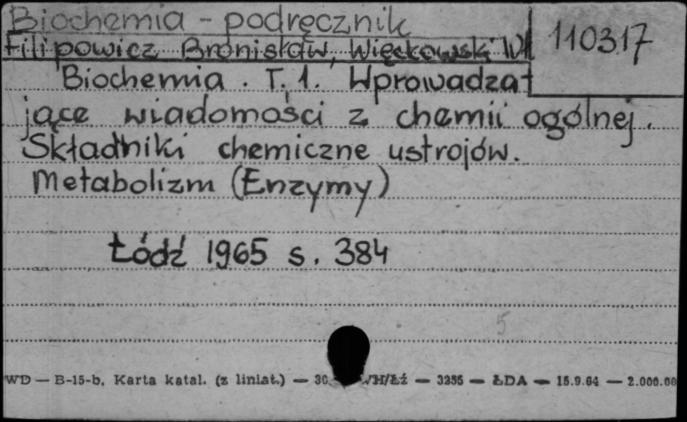 Biochemia - podręcznik
110317
Filipowicz Bronisław, Więckowski Wł
Biochemia. T. 1. Wprowadza-
jące wiadomości z chemii ogólnej.
Składniki chemiczne ustrojów.
Metabolizm (Enzymy)
Łódź 1965 s. 384
5
WD — B-15-b. Karta katal. (z liniat.) — 30. WH/Łź — 3255 — ŁDA — 15.9.64 — 2.000.00